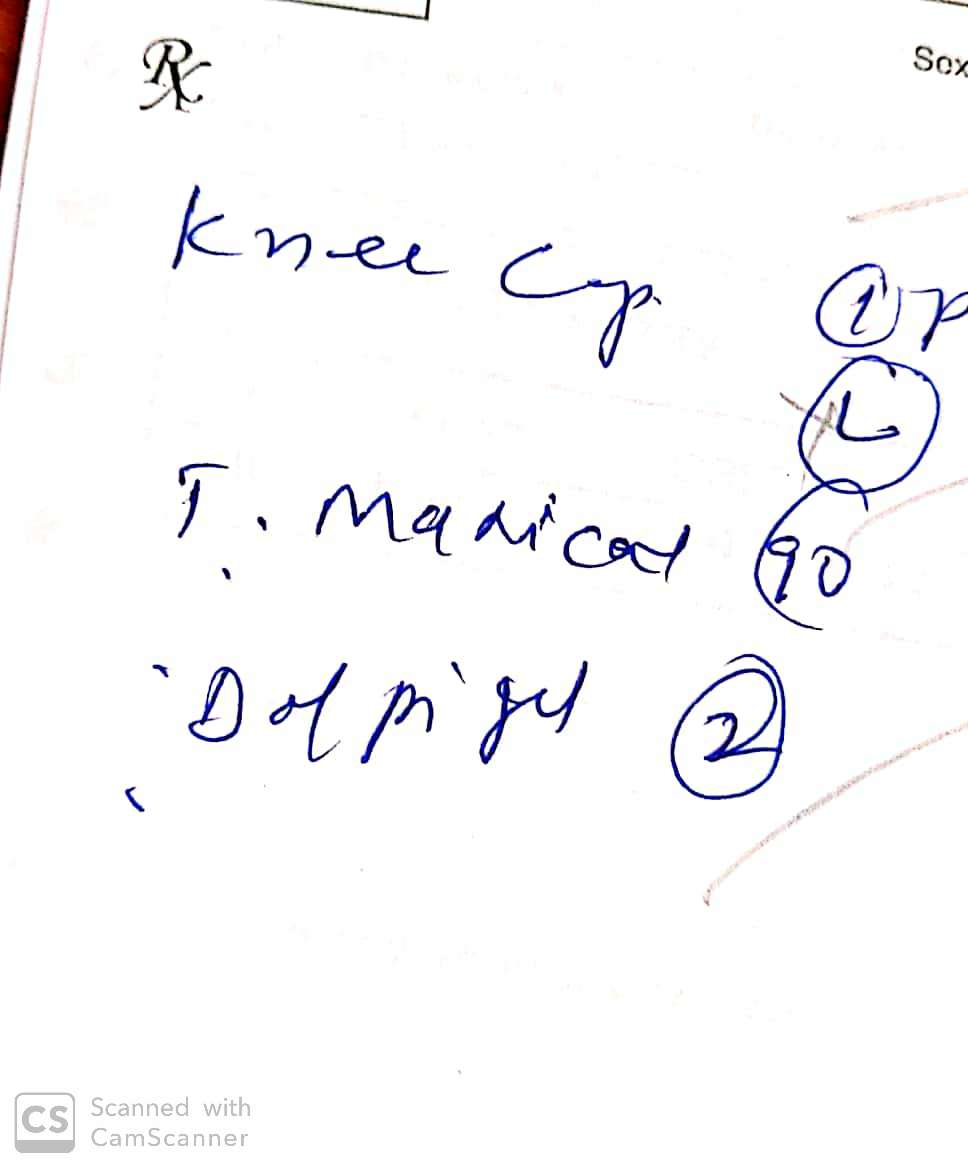 Rx
Sex
Knee Cap. 1 P
L
T. Madical 90
Dolpigel 2
CS Scanned with
CamScanner